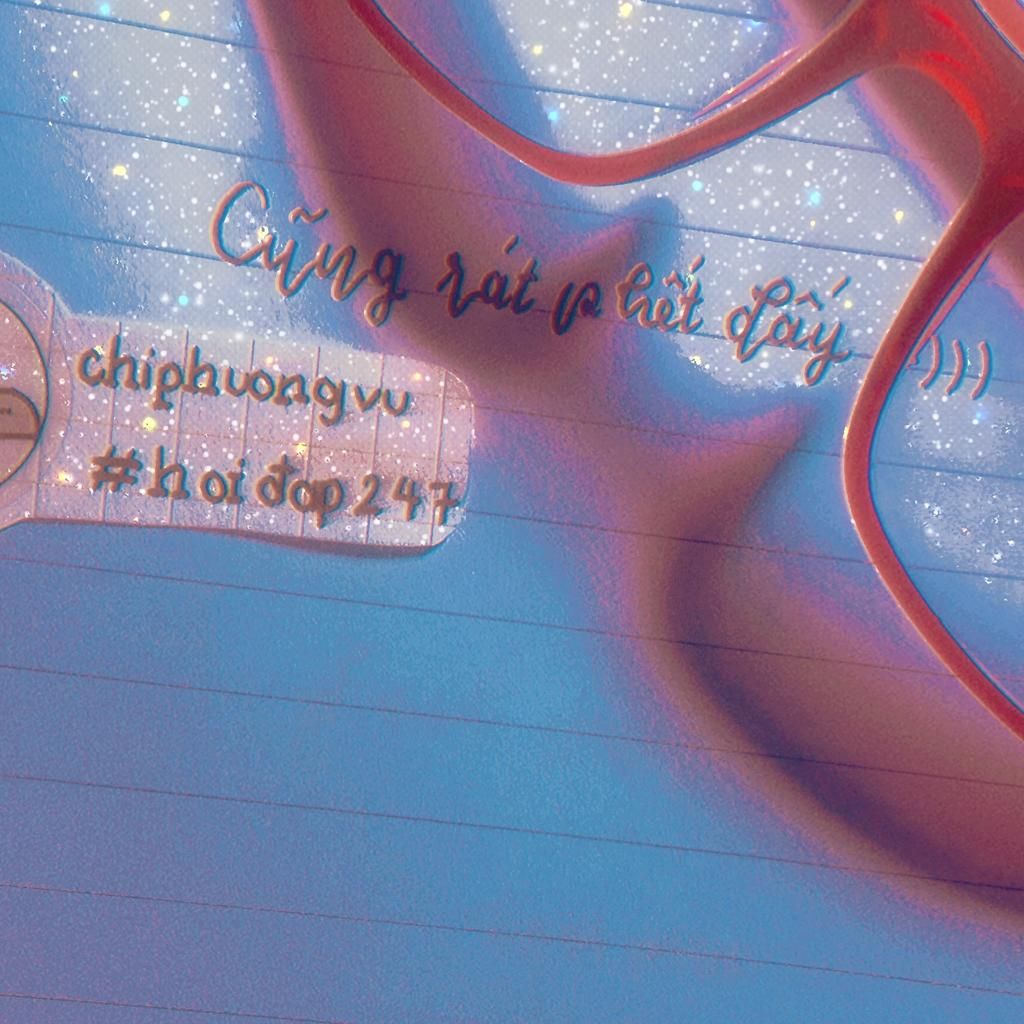 Cũng rát phết đấy )))
chiphuongvu
#hoiđap247